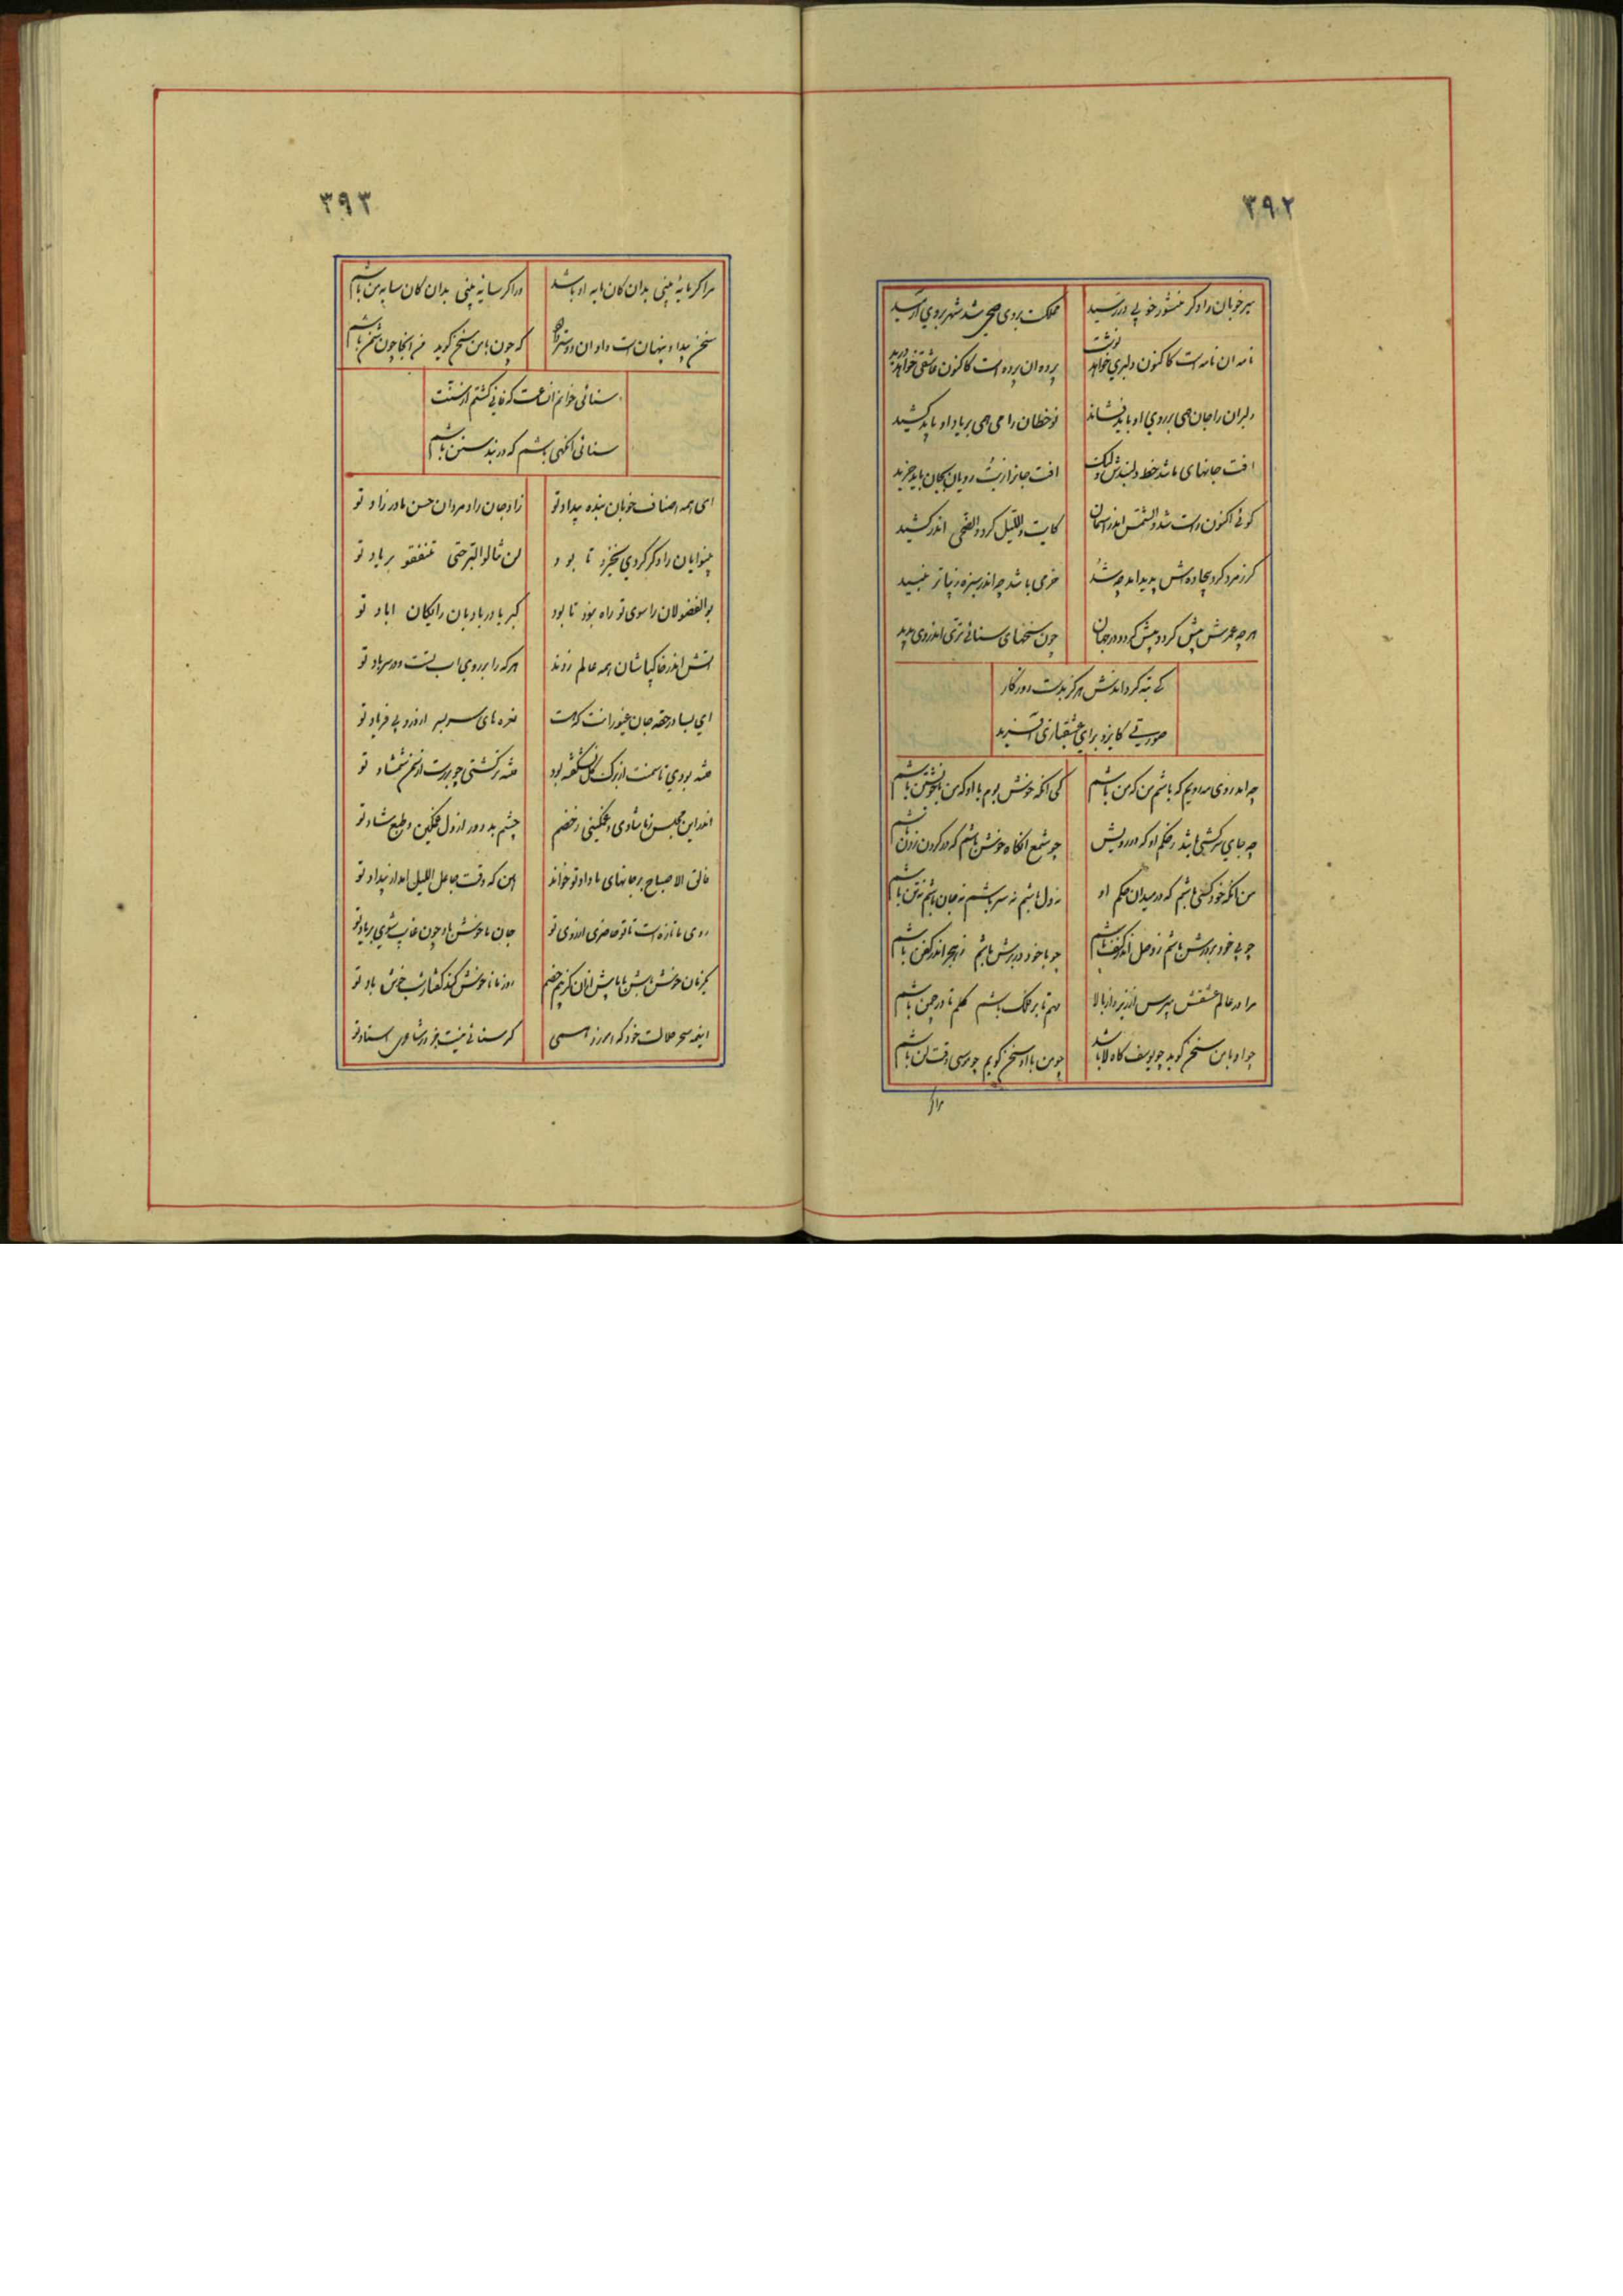 ۳۹۲
میر خوبان را دگر منشور خوبی در رسید
مملکت بر وی صحی شد شهر بروی آرمید
نامه آن نامه است کاکنون دلبری خواهد نوشت
پرده آن پرده است کاکنون عاشقی خواهد درید
دلبران را جان همی بر روی او باید فشاند
نوخطان را می همی بر یاد او باید کشید
آفت جانهای ما شد خط دلبندش ولیک
آفت جانرا ز بت رویان بجان باید خرید
گوئی اکنون راست شد والشمس اندر آسمان
کایت واللیل کرد والضحی اندر کشید
گر زمرد کرد بیجاده‌اش پدید آمد چه شد
خرمی باشد چو اندر سبزه زیباتر نبید
هر چه عمرش بیش گردد بیش گردد در جهان
چون سخنهای سنائی تری اندر وی پدید
کی تبه گرداندش هرگز بدست روزگار
صورتی کایزد برای عشقبازی آفرید
چه اندر روی مه رویم که باشم من که من باشم
کی آنگه خوش بوم با او که من با خویشتن باشم
چه جای سرکشی باشد ز حکم او که در رویش
چو شمع آنگاه خوش باشم که در گردن زدن باشم
من آنگه خود کسی باشم که در میدان حکم او
نه دل باشم نه سر باشم نه جان باشم نه تن باشم
چو بی خود بر درش باشم ز وصل اندر کنف باشم
چو با خود در برش باشم ز هجر اندر کفن باشم
مرا در عالم عشقش مپرس از زیر و از بالا
مهم تا بر فلک باشم گلم تا در چمن باشم
چو او با من سخن گوید چو یوسف گاه لا باشد
چو من با او سخن گویم چو موسی وقت لن باشم
مرا گر
۳۹۳
مرا گر مایهٔ بینی بدان کان مایه او باشد
ور اگر سایهٔ بینی بدان کان سایه من باشم
سخن پیدا و پنهان است و او آن دوستر دارد
که چون با من سخن گوید من آنجا چون سخن باشم
سنائی خوانم آن ساعت که فانی گشتم از سنت
سنائی آنگهی باشم که در بند سنن باشم
ای همه اصناف خوبان بنده بیداد تو
زاد جان رادمردان حسن مادرزاد تو
بینوایان را دگر کردی سخره تا بود
لن تنالوا البر حتی تنفقوا بر یاد تو
بوالفضولان را سوی تو راه نبود تا بود
کبر یا در بادبان رایگان آباد تو
آتش اندر خاکپاشان همه عالم زدند
هر که را بر روی آب تست در سر باد تو
ای بسا در حقه جان غیورانت که هست
نعره‌های سر بسر از درد بی فریاد تو
فتنه بودی تا سمنت از برگ گل نشکفته بود
فتنه‌تر گشتی چو بر رست از سمن شمشاد تو
اندر این مجلس ز ما شادی و غمگینی ز خصم
چشم بد دور از دل غمگین و طبع شاد تو
فالق الاصباح بر جانهای ما داد تو خواند
این که وقت جاعل اللیل آمد از بیداد تو
روی ما تازه است تا تو حاضری از روی تو
جان ما خوش باد چون غایب شوی بر یاد تو
یکزمان خوش باش با ما پیش از آن کز بیم خصم
روز ما ناخوش کند گفتار شب خوش باد تو
اینهمه سحر حلالت خود که آموزد همی
گر سنائی نیست جز در شاعری استاد تو